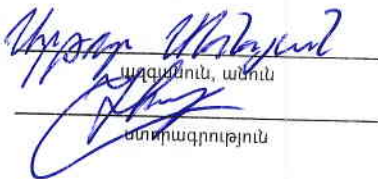 Արթուր
ազգանուն, անուն
ստորագրություն